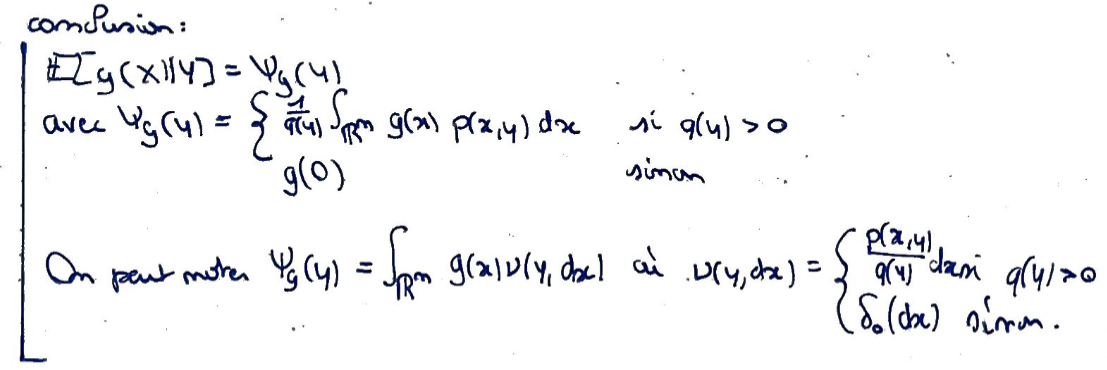 conclusion:
𝔼[g(X)|Y] = Ψ_g(Y)
avec Ψ_g(y) = { 1/q(y) ∫_{ℝ^m} g(x) p(x,y) dx si q(y) > 0
g(0) sinon
On peut noter Ψ_g(y) = ∫_{ℝ^m} g(x) ν(y, dx) où ν(y, dx) = { p(x,y)/q(y) dx si q(y) > 0
δ₀(dx) sinon.